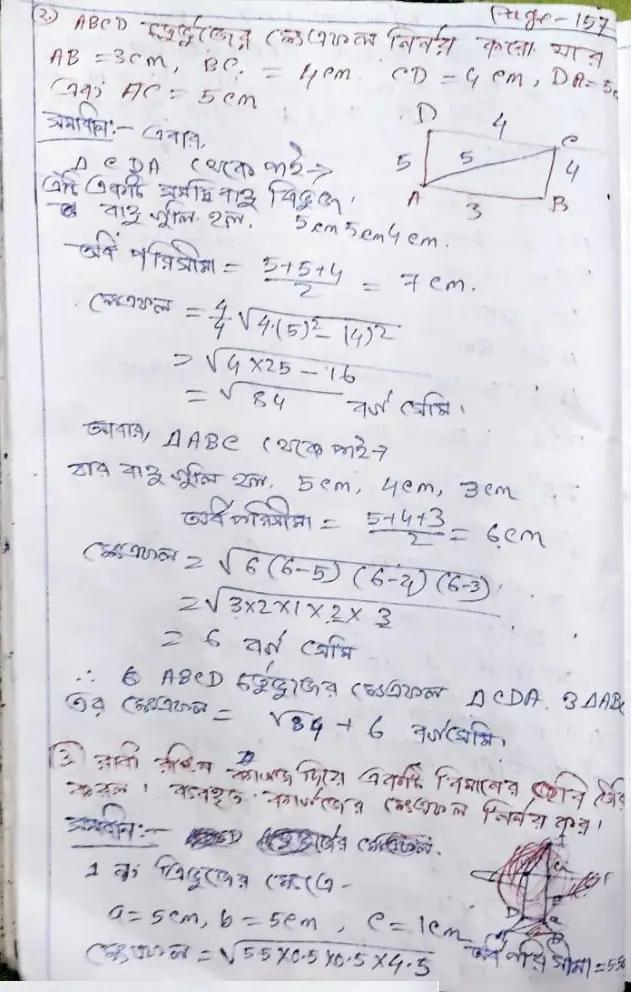 Page - 157
(2.) ABCD চতুর্ভুজের ক্ষেত্রফল নির্নয় করো যার
AB = 3cm, BC = 4cm CD = 4 cm, DA = 5c
এবং AC = 5cm
সমাধান:- এবার,
Δ CDA থেকে পাই→
এটি একটি সমদ্বিবাহু ত্রিভুজ।
বাহু গুলি হল. 5cm 5cm 4cm.
D 4 C
5 5 4
A 3 B
অর্ধ পরিসীমা = 5+5+4/2 = 7cm.
ক্ষেত্রফল = 4/4 √4.(5)²- (4)²
= √4×25 - 16
= √84 বর্গ সেমি।
আবার, ΔABC থেকে পাই→
যার বাহু গুলি হল. 5cm, 4cm, 3cm
অর্ধপরিসীমা = 5+4+3/2 = 6cm
ক্ষেত্রফল = √6(6-5) (6-4) (6-3)
= √3×2×1×2×3
= 6 বর্গ সেমি
∴ ABCD চতুর্ভুজের ক্ষেত্রফল ΔCDA ও ΔABC
এর ক্ষেত্রফল = √84 + 6 বর্গসেমি.
(3) রাধা রঙিন কাগজ দিয়ে একটি বিমানের ছবি তৈরি
করল। ব্যবহৃত কাগজের ক্ষেত্রফল নির্নয় কর।
সমাধান:-
1 নং ত্রিভুজের ক্ষেত্রে -
a = 5cm, b = 5cm, c = 1cm
ক্ষেত্রফল = √5.5×0.5×0.5×4.5 অর্ধ পরিসীমা = 5.5